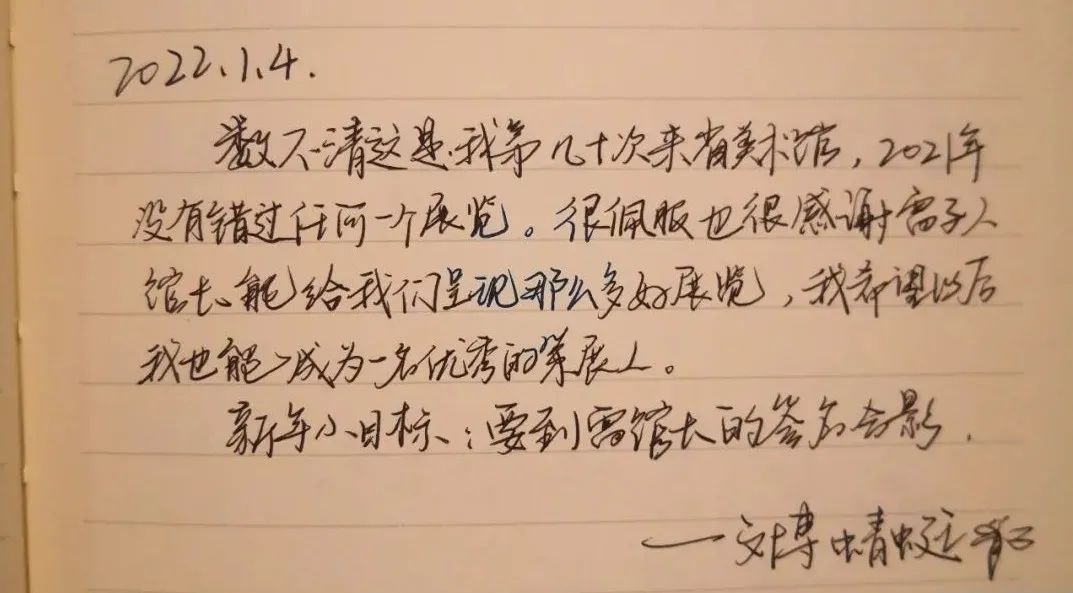 2022.1.4.
数不清这是我第几十次来省美术馆，2021年
没有错过任何一个展览。很佩服也很感谢雷子人
馆长能给我们呈现那么多好展览，我希望以后
我也能成为一名优秀的策展人。
新年小目标：要到雷馆长的签名合影.
—文博蜻蜓